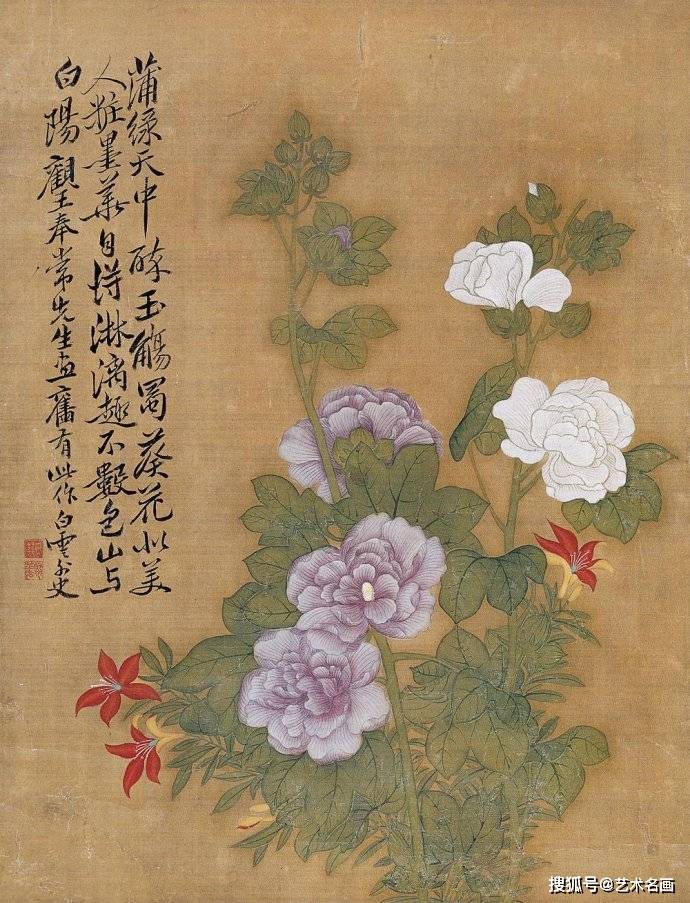 蒲緑天中醉玉觴蜀葵花美
人粧墨華自得淋漓趣不數包山与
白陽 觀王奉常先生画舊有此作白雲外史
搜狐号@艺术名画